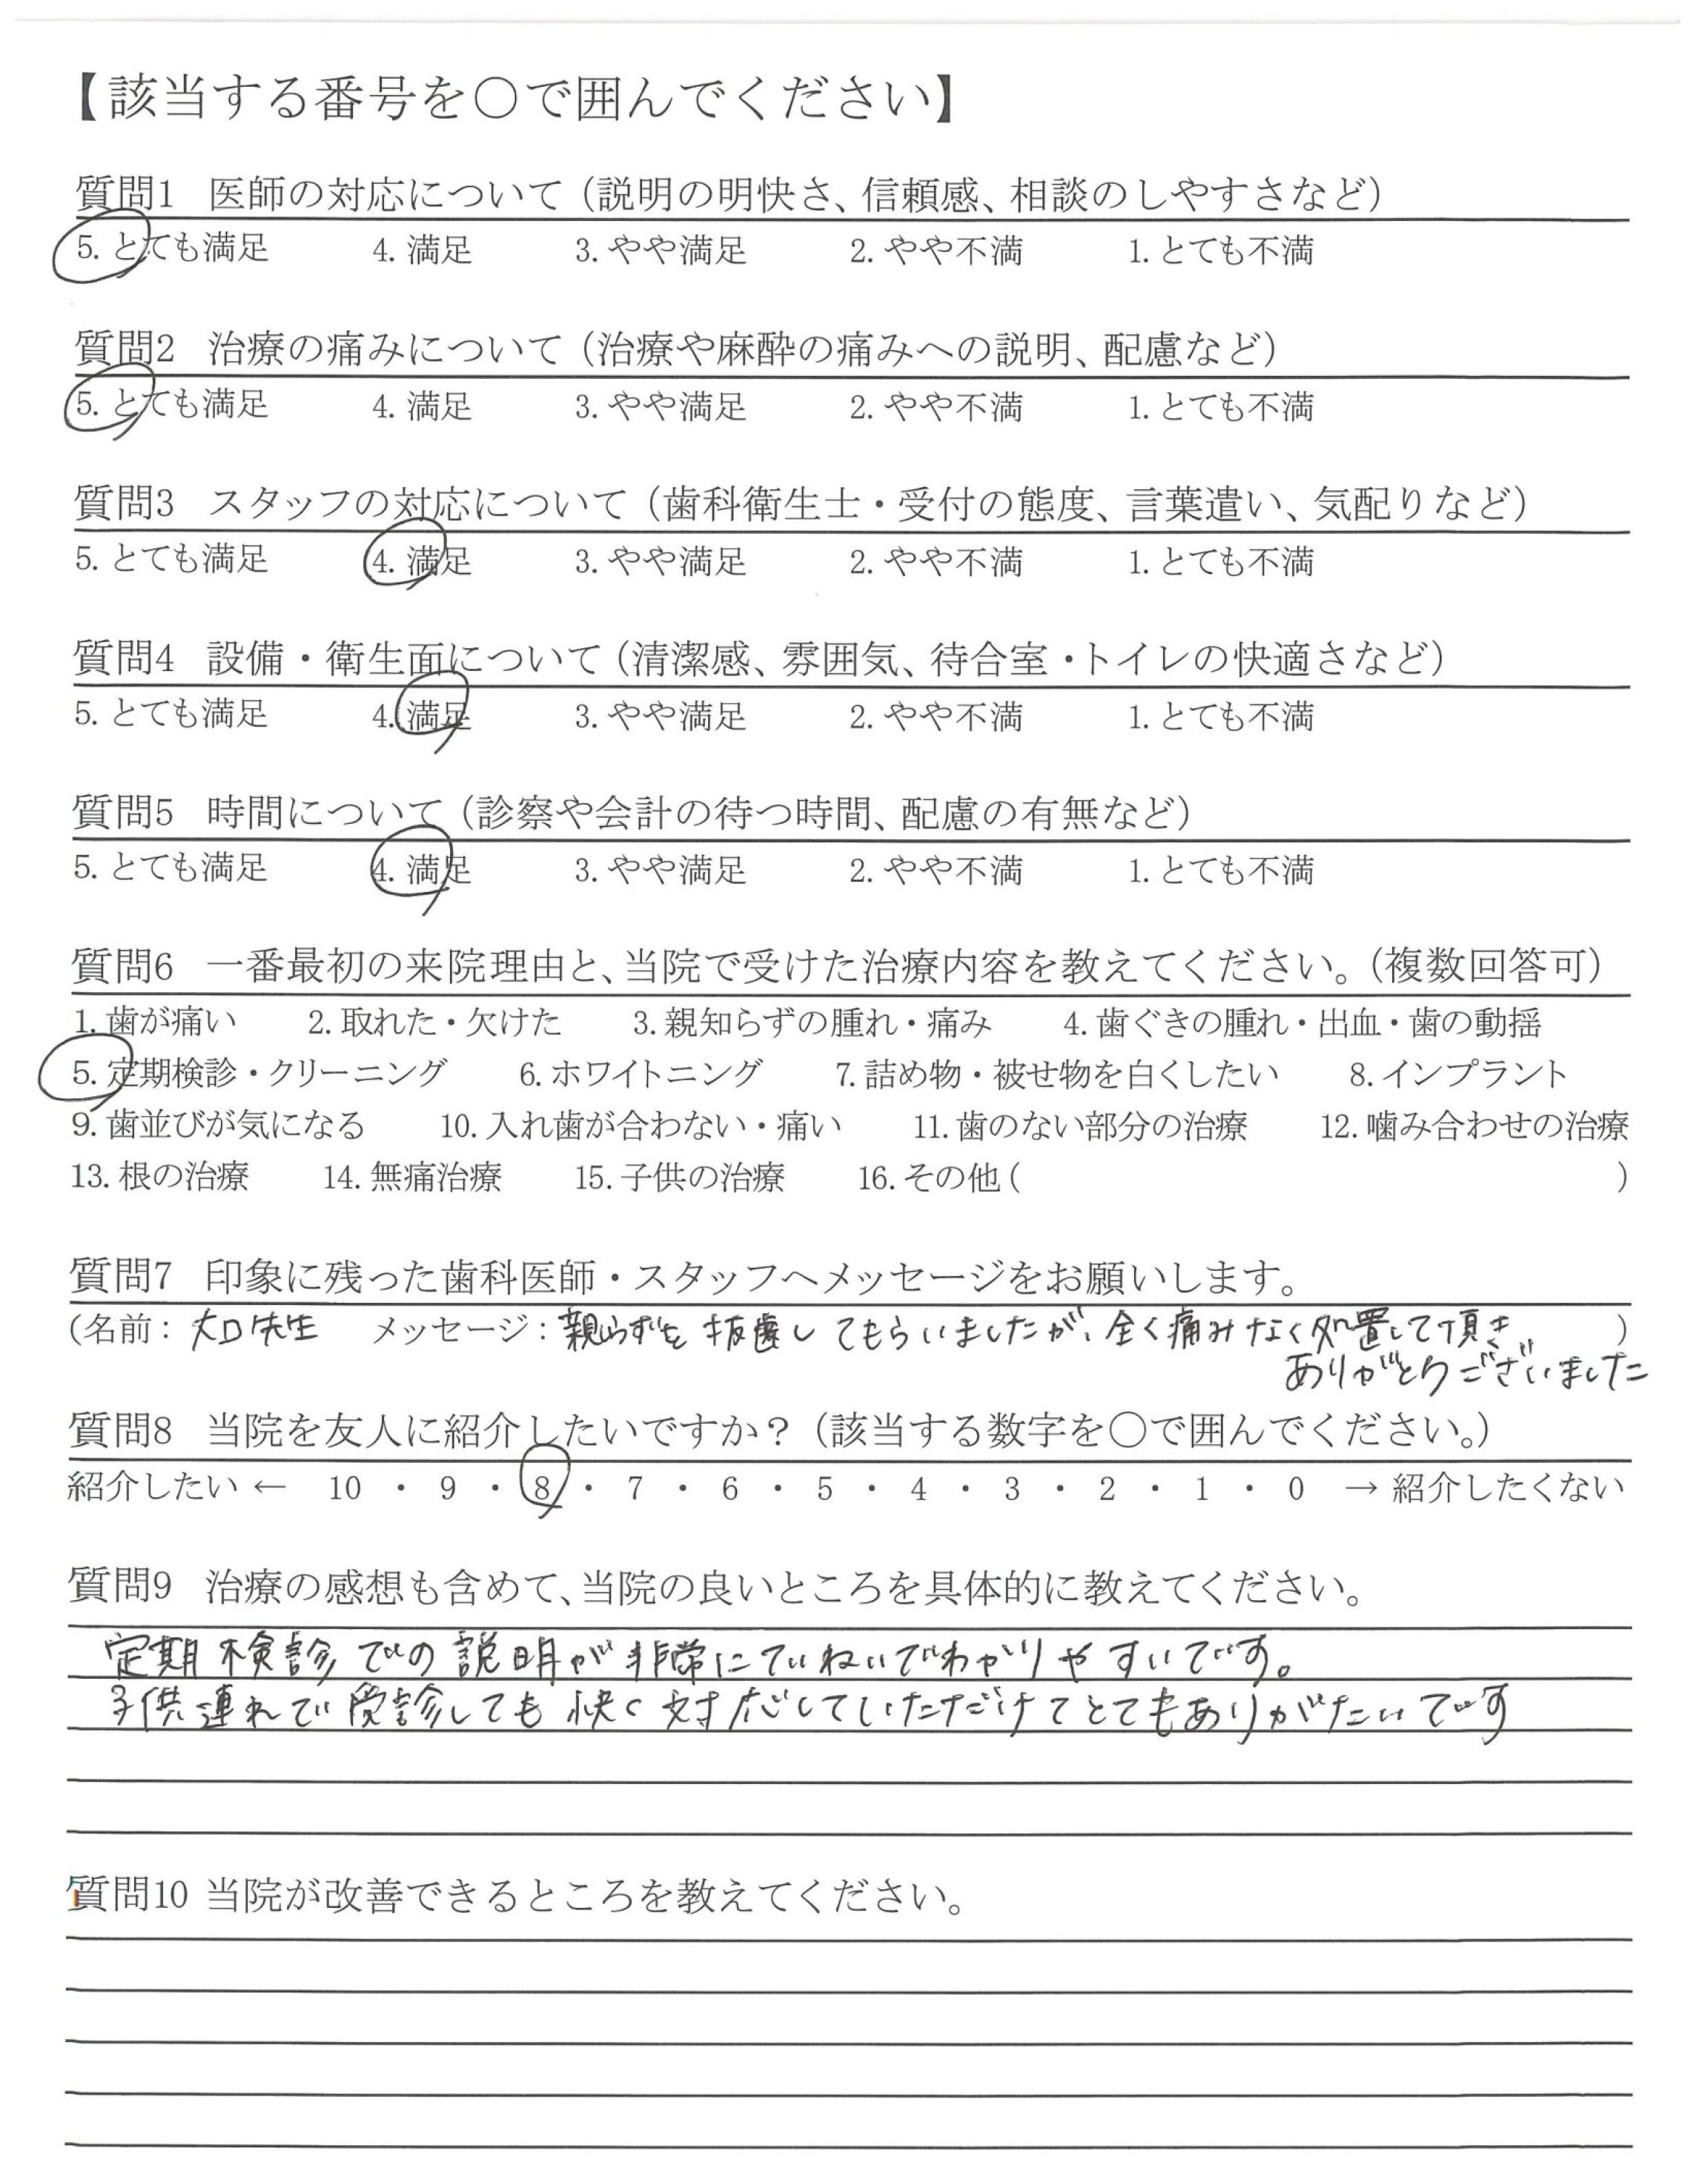 【該当する番号を○で囲んでください】
質問1 医師の対応について（説明の明快さ、信頼感、相談のしやすさなど）
5. とても満足 4. 満足 3. やや満足 2. やや不満 1. とても不満
質問2 治療の痛みについて（治療や麻酔の痛みへの説明、配慮など）
5. とても満足 4. 満足 3. やや満足 2. やや不満 1. とても不満
質問3 スタッフの対応について（歯科衛生士・受付の態度、言葉遣い、気配りなど）
5. とても満足 4. 満足 3. やや満足 2. やや不満 1. とても不満
質問4 設備・衛生面について（清潔感、雰囲気、待合室・トイレの快適さなど）
5. とても満足 4. 満足 3. やや満足 2. やや不満 1. とても不満
質問5 時間について（診察や会計の待つ時間、配慮の有無など）
5. とても満足 4. 満足 3. やや満足 2. やや不満 1. とても不満
質問6 一番最初の来院理由と、当院で受けた治療内容を教えてください。（複数回答可）
1. 歯が痛い 2. 取れた・欠けた 3. 親知らずの腫れ・痛み 4. 歯ぐきの腫れ・出血・歯の動揺
5. 定期検診・クリーニング 6. ホワイトニング 7. 詰め物・被せ物を白くしたい 8. インプラント
9. 歯並びが気になる 10. 入れ歯が合わない・痛い 11. 歯のない部分の治療 12. 噛み合わせの治療
13. 根の治療 14. 無痛治療 15. 子供の治療 16. その他（ ）
質問7 印象に残った歯科医師・スタッフへメッセージをお願いします。
（名前：大口先生 メッセージ：親知らずを抜歯してもらいましたが、全く痛みなく処置して頂き ）
ありがとうございました
質問8 当院を友人に紹介したいですか？（該当する数字を○で囲んでください。）
紹介したい ← 10 ・ 9 ・ 8 ・ 7 ・ 6 ・ 5 ・ 4 ・ 3 ・ 2 ・ 1 ・ 0 → 紹介したくない
質問9 治療の感想も含めて、当院の良いところを具体的に教えてください。
定期検診での説明が非常にていねいでわかりやすいです。
子供連れで受診しても快く対応していただけてとてもありがたいです
質問10 当院が改善できるところを教えてください。